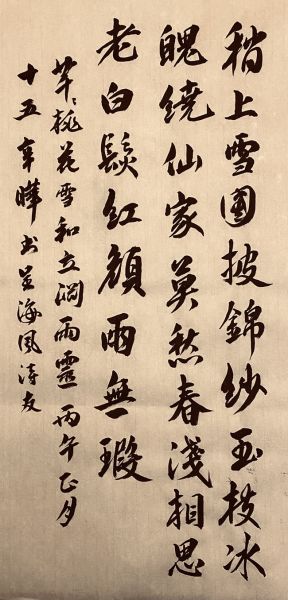 稍上雪團披錦紗玉枝冰
魄繞仙家莫愁春淺相思
老白鬚紅顏兩無瑕
桃花雪和立澗雨靈丙午正月
十五辛曄書呈海風詩友